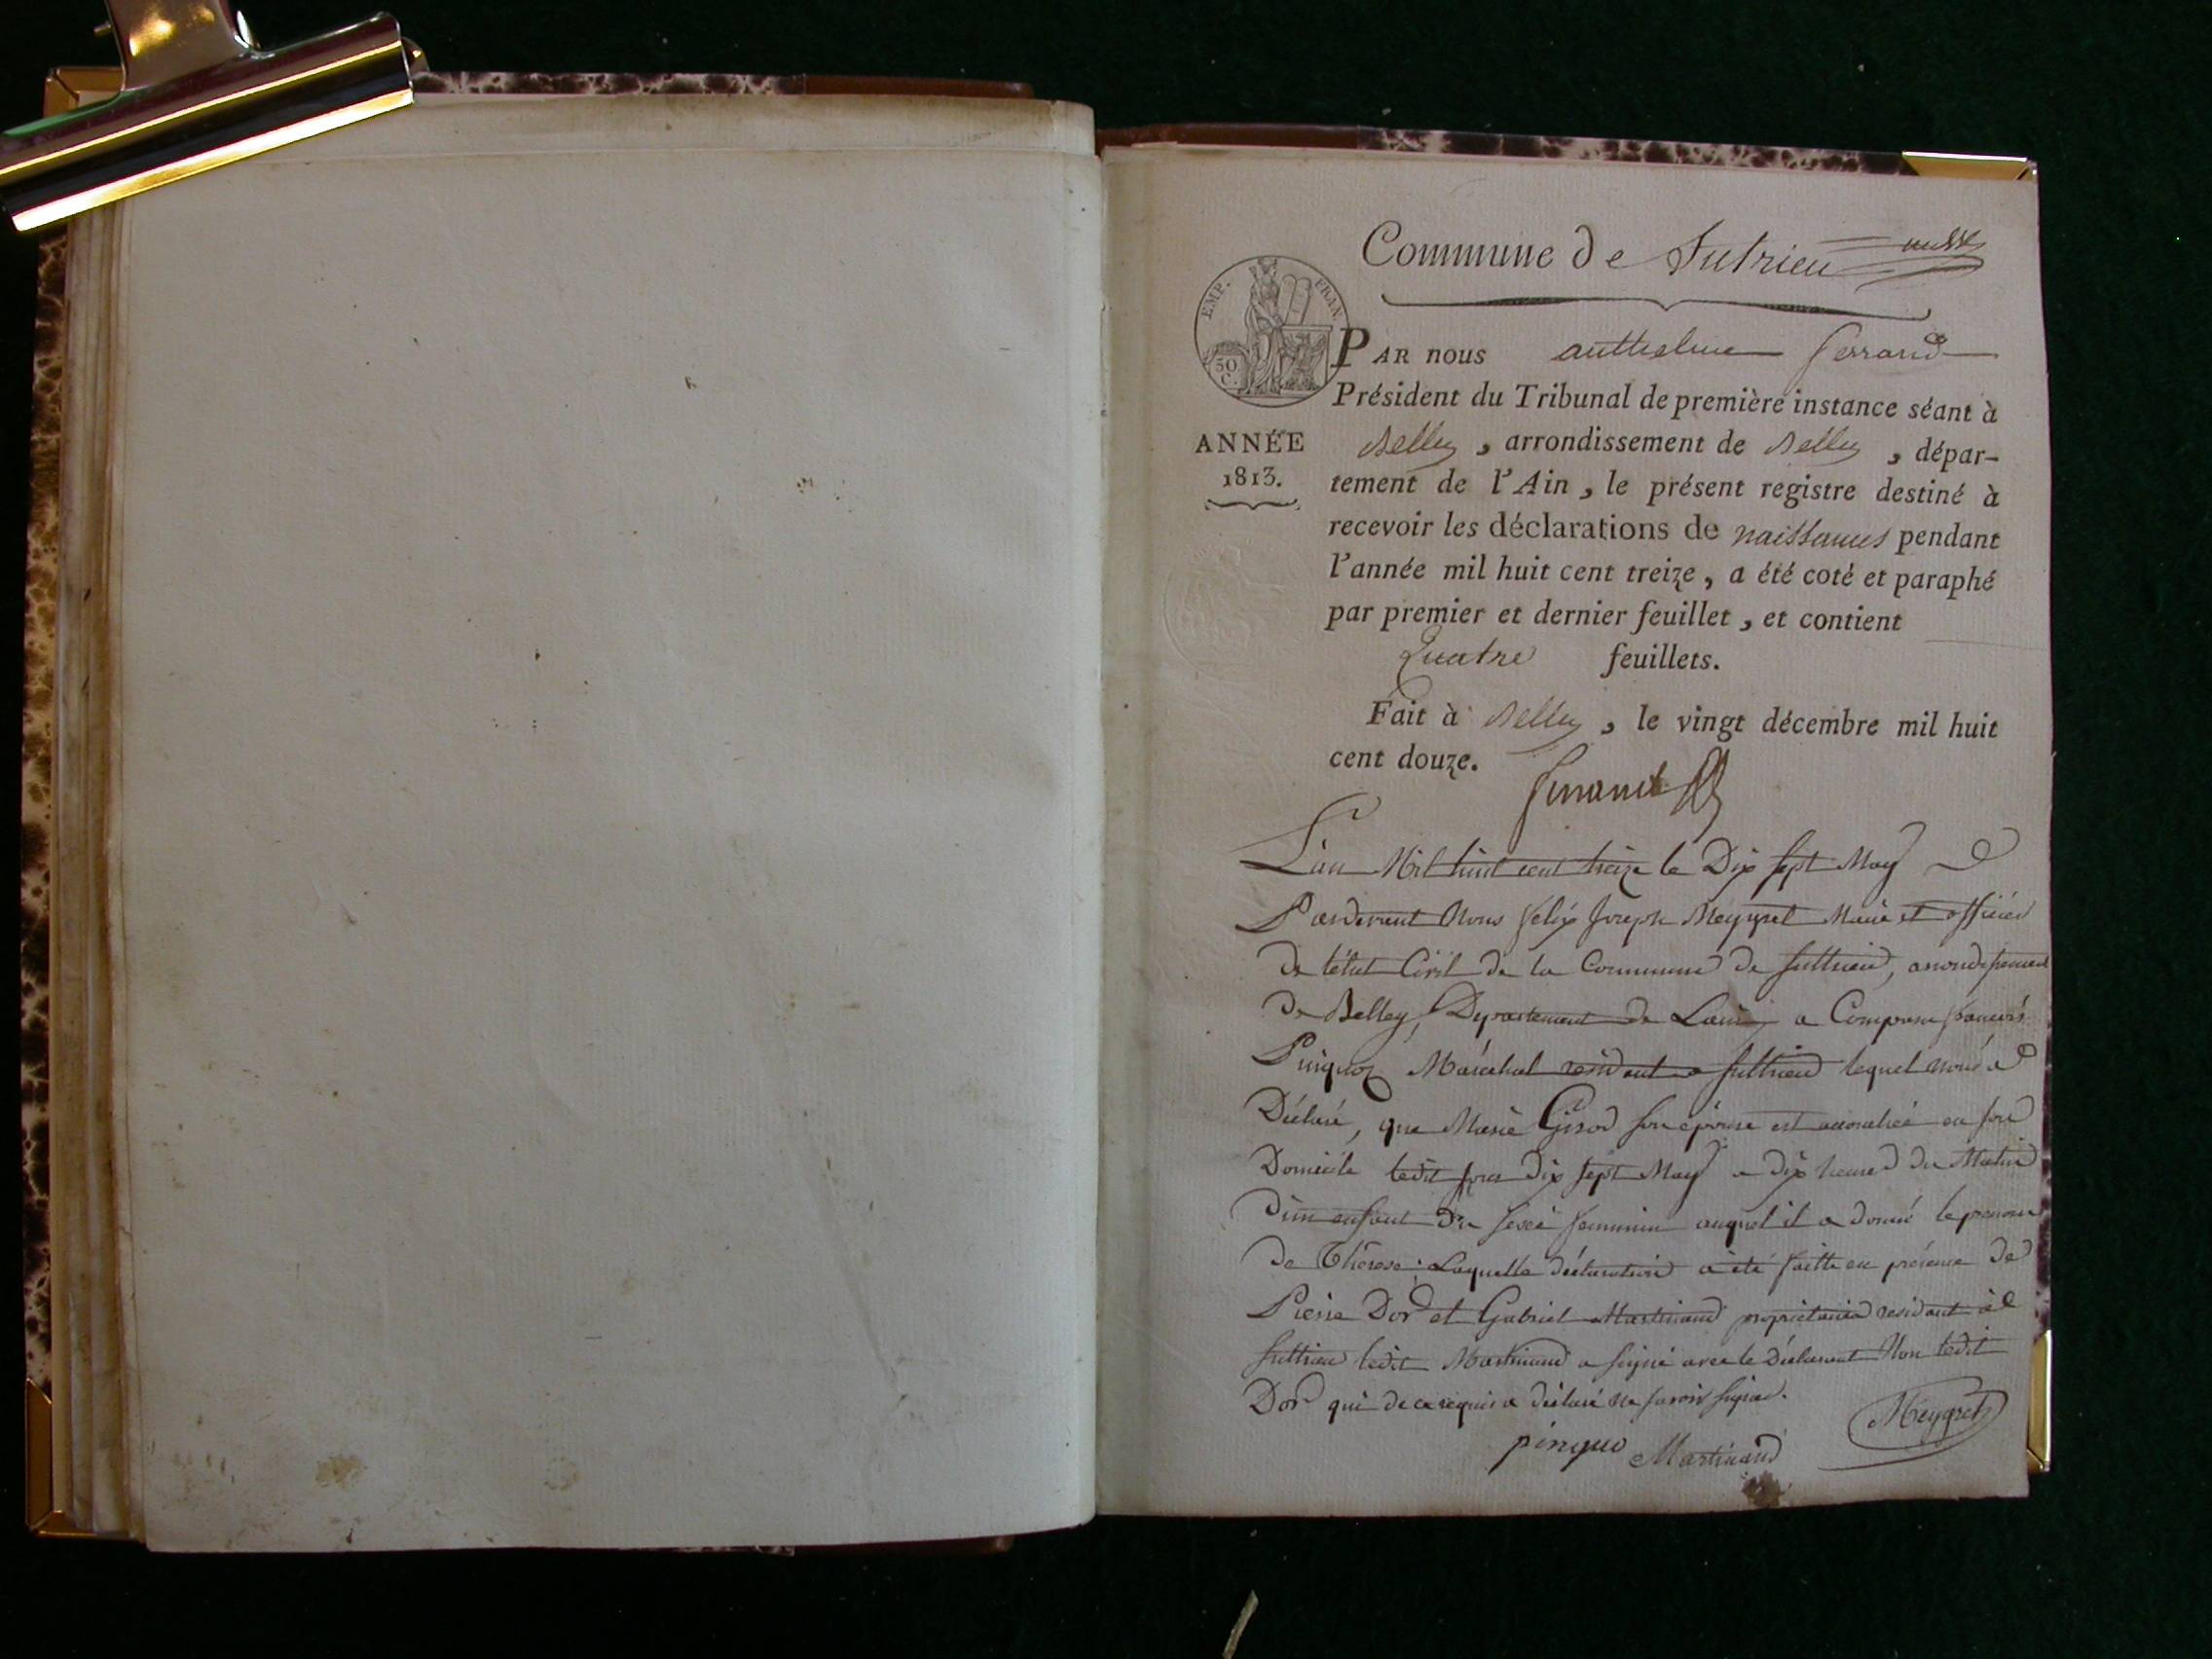 Commune de Sutrieu
EMP. FRAN.
50
C.
PAR nous anthelme ferrand
Président du Tribunal de première instance séant à
ANNÉE
1813.
Belley, arrondissement de Belley, dépar-
tement de l'Ain, le présent registre destiné à
recevoir les déclarations de naissances pendant
l'année mil huit cent treize, a été coté et paraphé
par premier et dernier feuillet, et contient
Quatre feuillets.
Fait à Belley, le vingt décembre mil huit
cent douze.
ferrand
L'an Mil huit cent treize le Dix sept May
Pardevant Nous felix Joseph Meygret Maire et officier
de l'état Civil de la Commune de Suttrieu, arrondissement
de Belley, Departement de Lain, a Comparu francois
Pinquoz Maréchal residant a Suttrieu lequel nous a
Déclaré, que Marie Girod son épouse est accouchée en son
Domicile ledit jour Dix sept May a dix heures du Matin
d'un enfant du sexe feminin auquel il a donné le prenom
de Thérese; Laquelle déclaration a été faitte en présence de
Pierre Dor et Gabriel Martinand proprietaires residant à
Suttrieu ledit Martinand a signé avec le Déclarant Non ledit
Dor qui de ce requis a déclaré ne savoir signer.
Meygret
pinquo Martinand